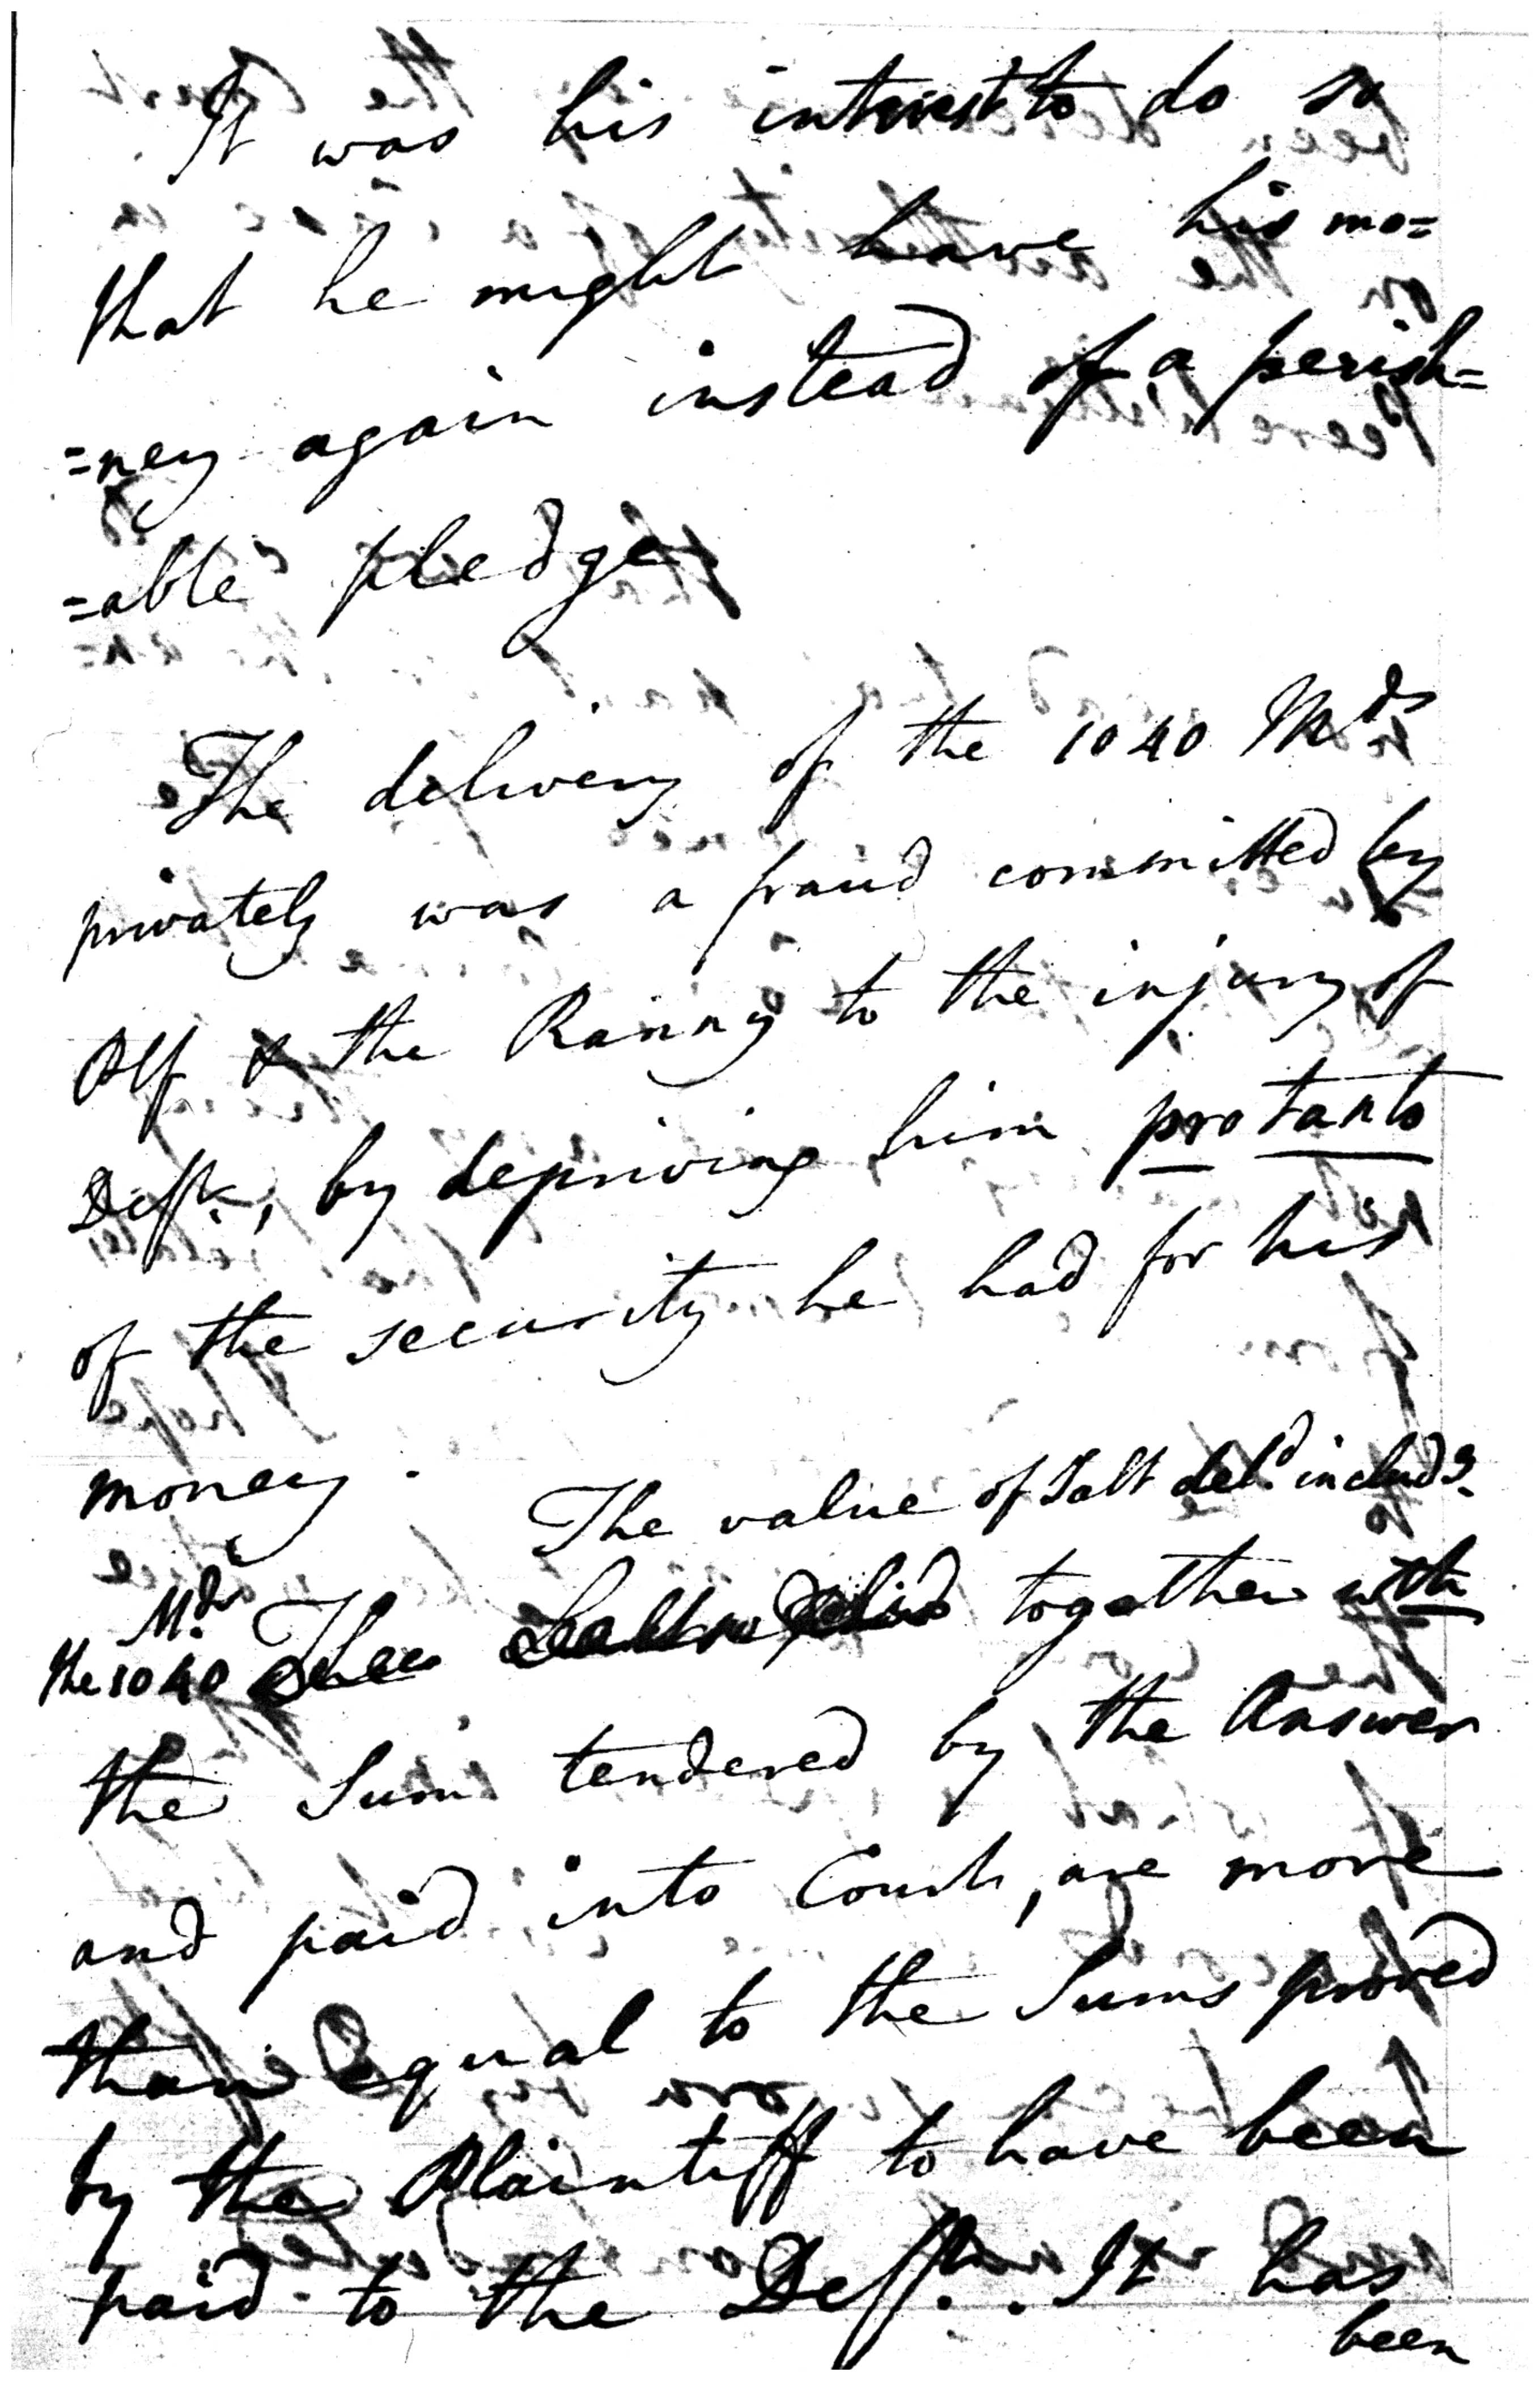 It was his interest to do so
that he might have his mo=
=ney again instead of a perish=
=able pledge.
The delivery of the 1040 Mds
privately was a fraud committed by
Plf & the Ranny to the injury of
Deft., by depriving him pro tanto
of the security he had for his
money.
The value of Salt deld. includg.
the 1040 Mds. together with
the Sum tendered by the Answer
and paid into Court, are more
than equal to the Sums proved
by the Plaintiff to have been
paid to the Deft. . It has
been